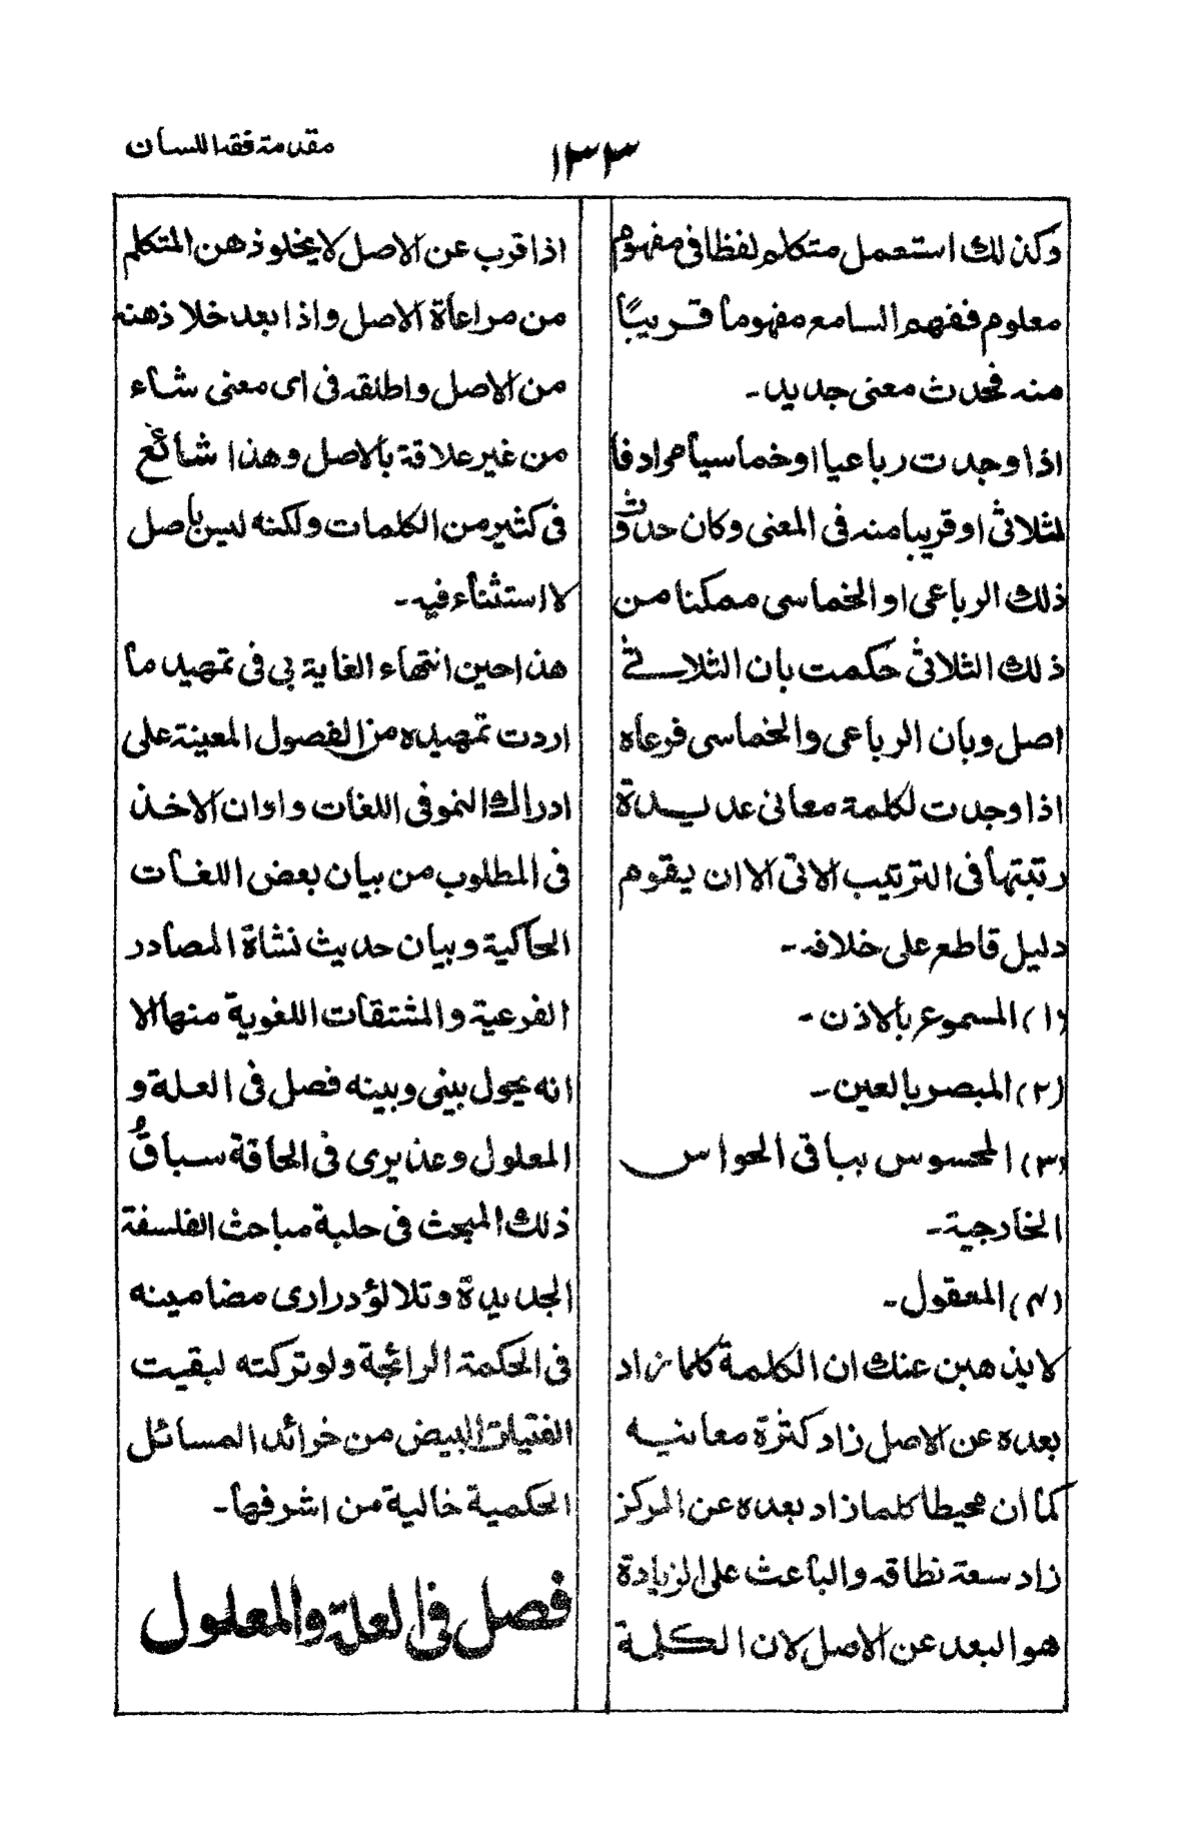 مقدمة فقه اللسان
١٣٣
وكذلك استعمل متكلم لفظا فى مفهوم
معلوم ففهم السامع مفهوما قريبًا
منه فحدث معنى جديد۔
اذا وجدت رباعيا او خماسيا مرادفا
لثلاثى او قريبا منه فى المعنى وكان حدوث
ذلك الرباعى او الخماسى ممكنا من
ذلك الثلاثى حكمت بان الثلاثى
اصل وبان الرباعى والخماسى فرعاه
اذا وجدت لكلمة معانى عديدة
رتبتها فى الترتيب الاتى الا ان يقوم
دليل قاطع على خلافه۔
(١) المسموع بالاذن۔
(٢) المبصر بالعين۔
(٣) المحسوس بباقى الحواس
الخارجية۔
(۴) المعقول۔
لا يذهبن عنك ان الكلمة كلما زاد
بعده عن الاصل زاد كثرة معانيه
كما ان محيطا كلما زاد بعده عن المركز
زاد سعة نطاقه والباعث على الزيادة
هو البعد عن الاصل لان الكلمة
اذا قرب عن الاصل لا يخلو ذهن المتكلم
من مراعاة الاصل واذا بعد خلا ذهنه
من الاصل واطلقه فى اى معنى شاء
من غير علاقة بالاصل وهذا شائع
فى كثير من الكلمات ولكنه ليس باصل
لا استثناء فيه۔
هذا حين انتهاء الغاية بى فى تمهيد ما
اردت تمهيده من الفصول المعينة على
ادراك النمو فى اللغات واوان الاخذ
فى المطلوب من بيان بعض اللغات
الحاكية وبيان حديث نشاة المصادر
الفرعية والمشتقات اللغوية منها الا
انه يحول بينى وبينه فصل فى العلة و
المعلول وعذيرى فى الحاقة سباقُ
ذلك المبحث فى حلبة مباحث الفلسفة
الجديدة وتلالؤ درارى مضامينه
فى الحكمة الرائجة ولو تركته لبقيت
الفتيات البيض من خرائد المسائل
الحكمية خالية من اشرفها۔
فصل فى العلة والمعلول